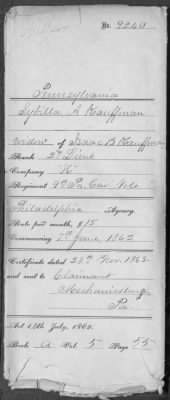 No. 9240
Pennsylvania
Sybilla A Kauffman
Widow of Isaac B Kauffman
Rank 2d Lieut
Company "K"
Regiment 9th Pa Cav Vols
Philadelphia Agency.
Rate per month, $15
Commencing 1st June, 1862
Certificate dated 28th Nov. 1862
and sent to Claimant
Mechanicsburg
Pa.
Act 14th July, 1862.
Book A Vol. 5 Page 55